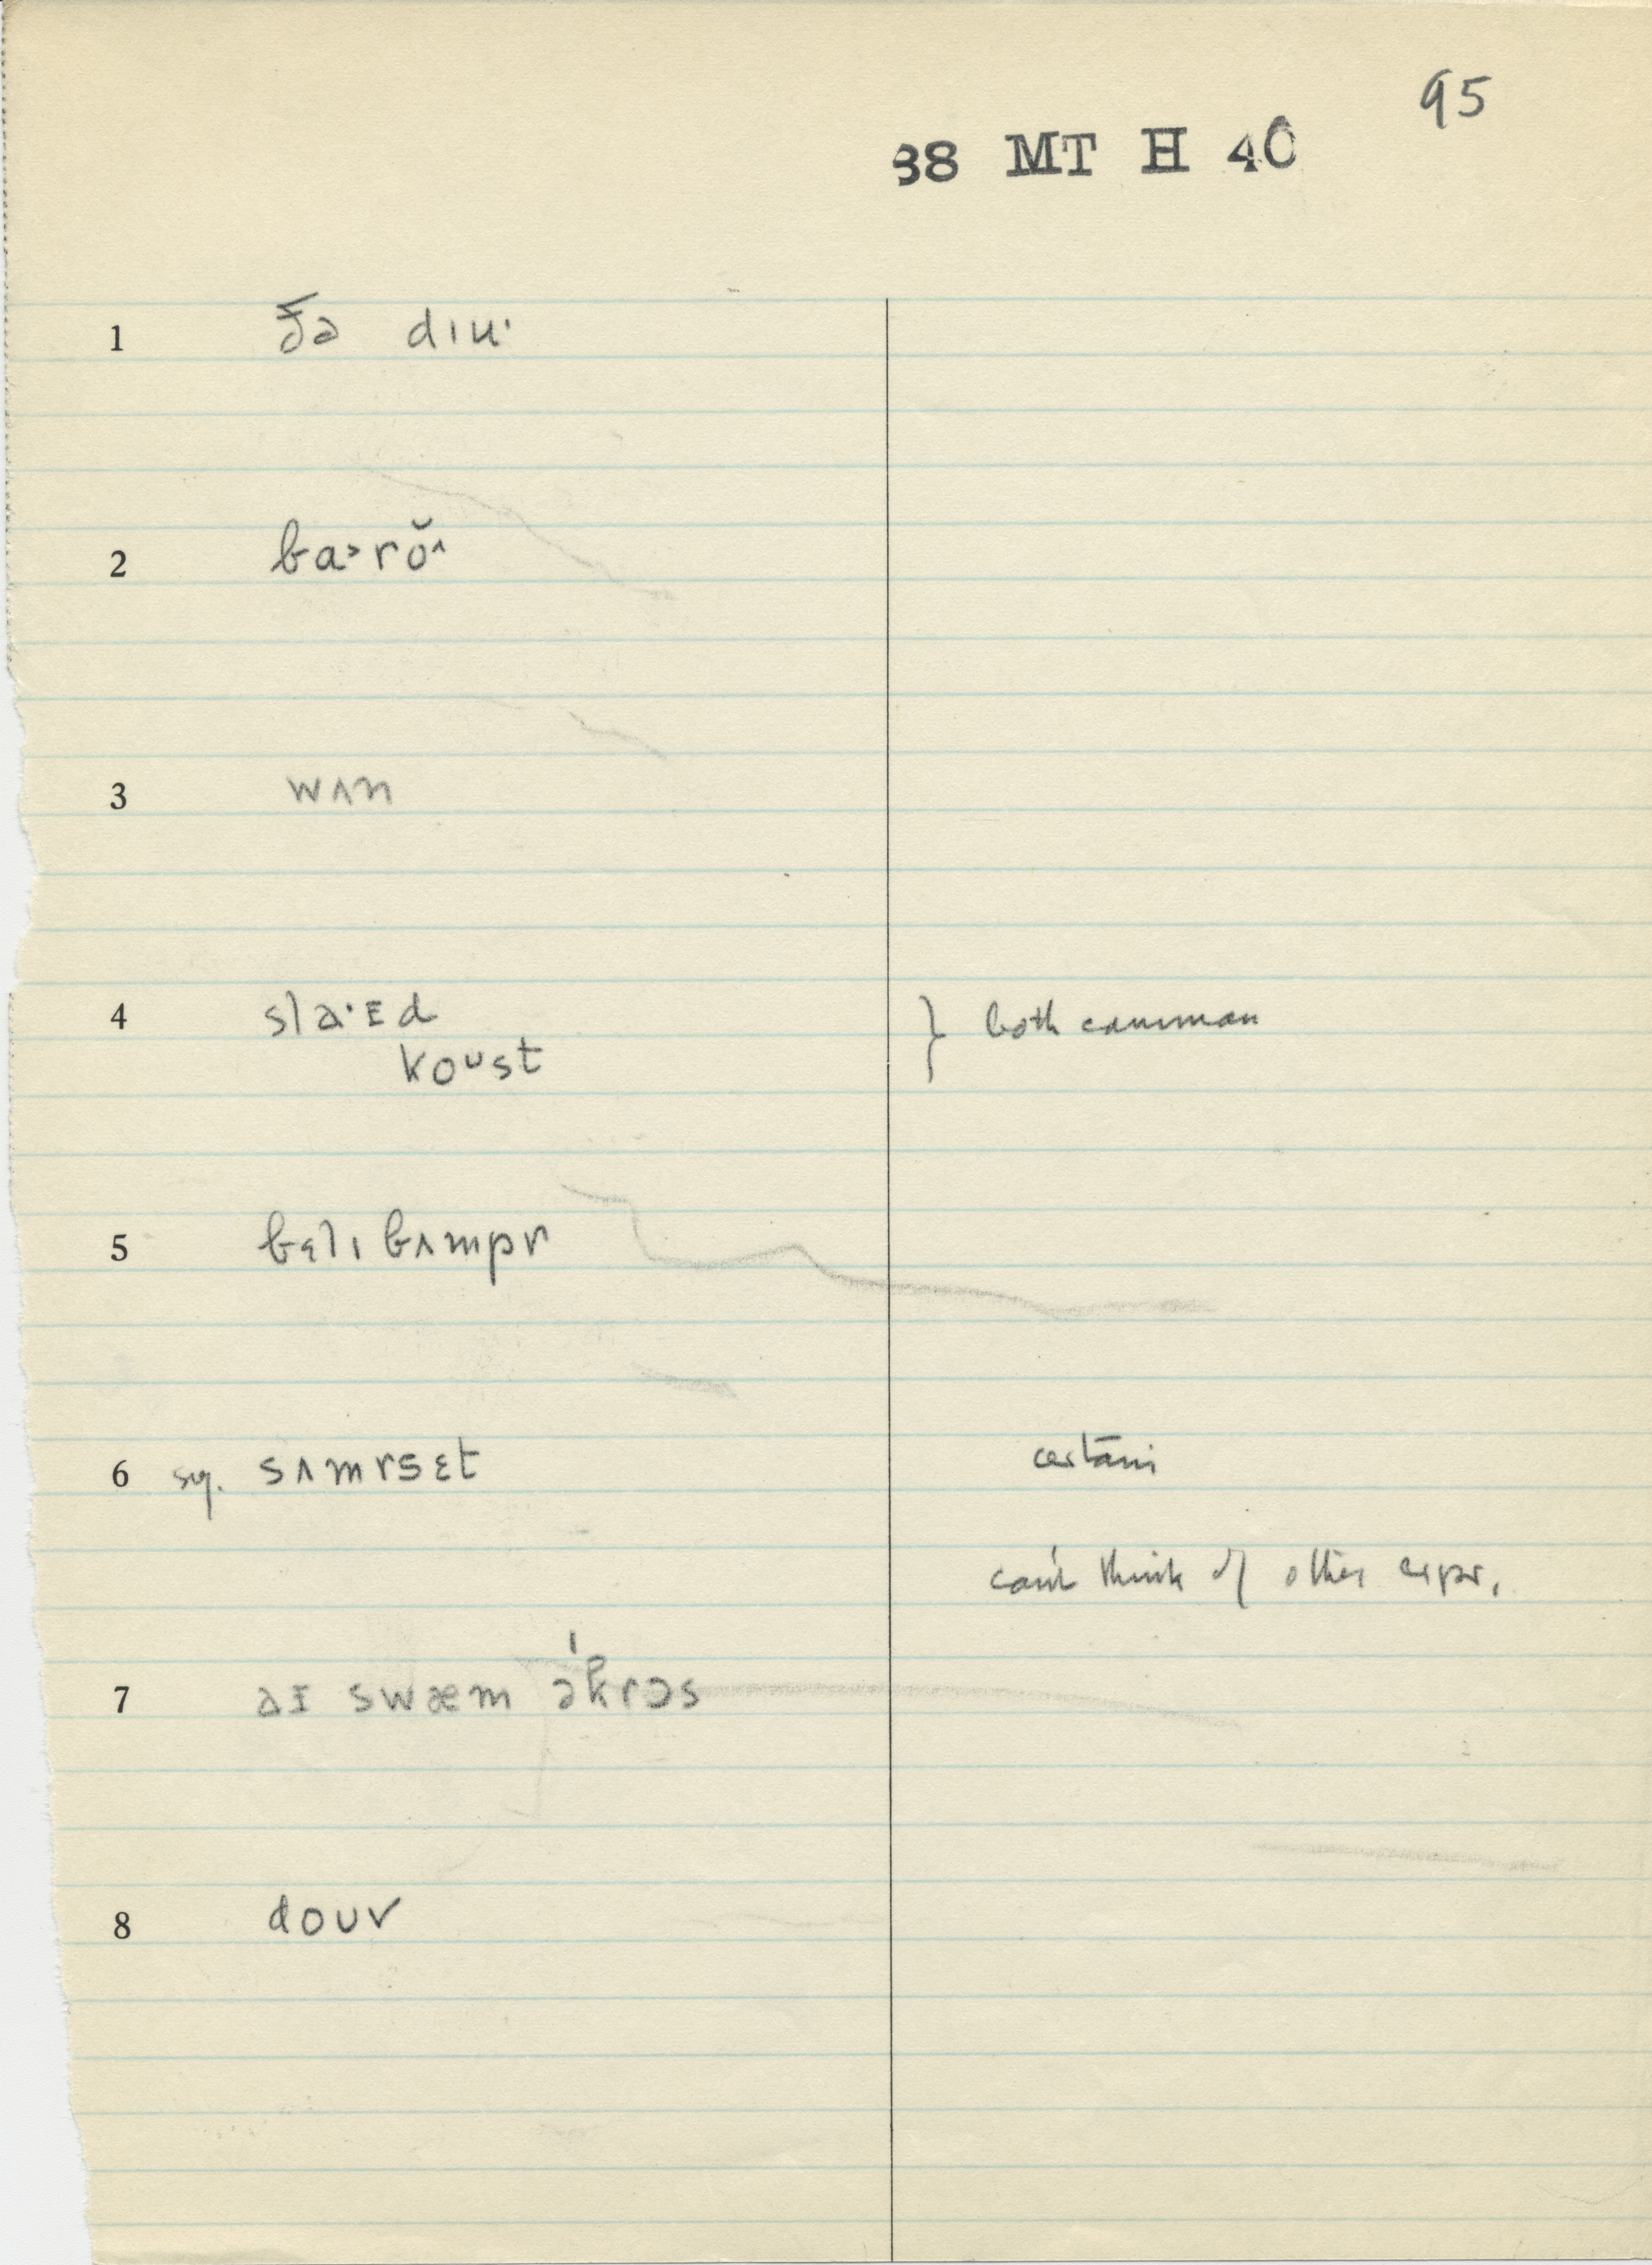 95
38 MT H 40
1 ðə dɪu·
2 ba˃rŏ^
3 wʌn
4 sla·ɪd } both common
koᴜst
5 bɛlɪ bʌmpr
6 sg. sʌmrsɛt certain
can't think of other expr.
7 aɪ swæm əˈkrɔs
8 doʊv